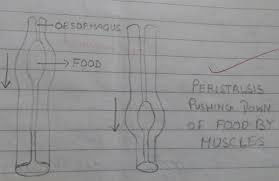 OESOPHAGUS
FOOD
PERISTALSIS
PUSHING DOWN
OF FOOD BY
MUSCLES